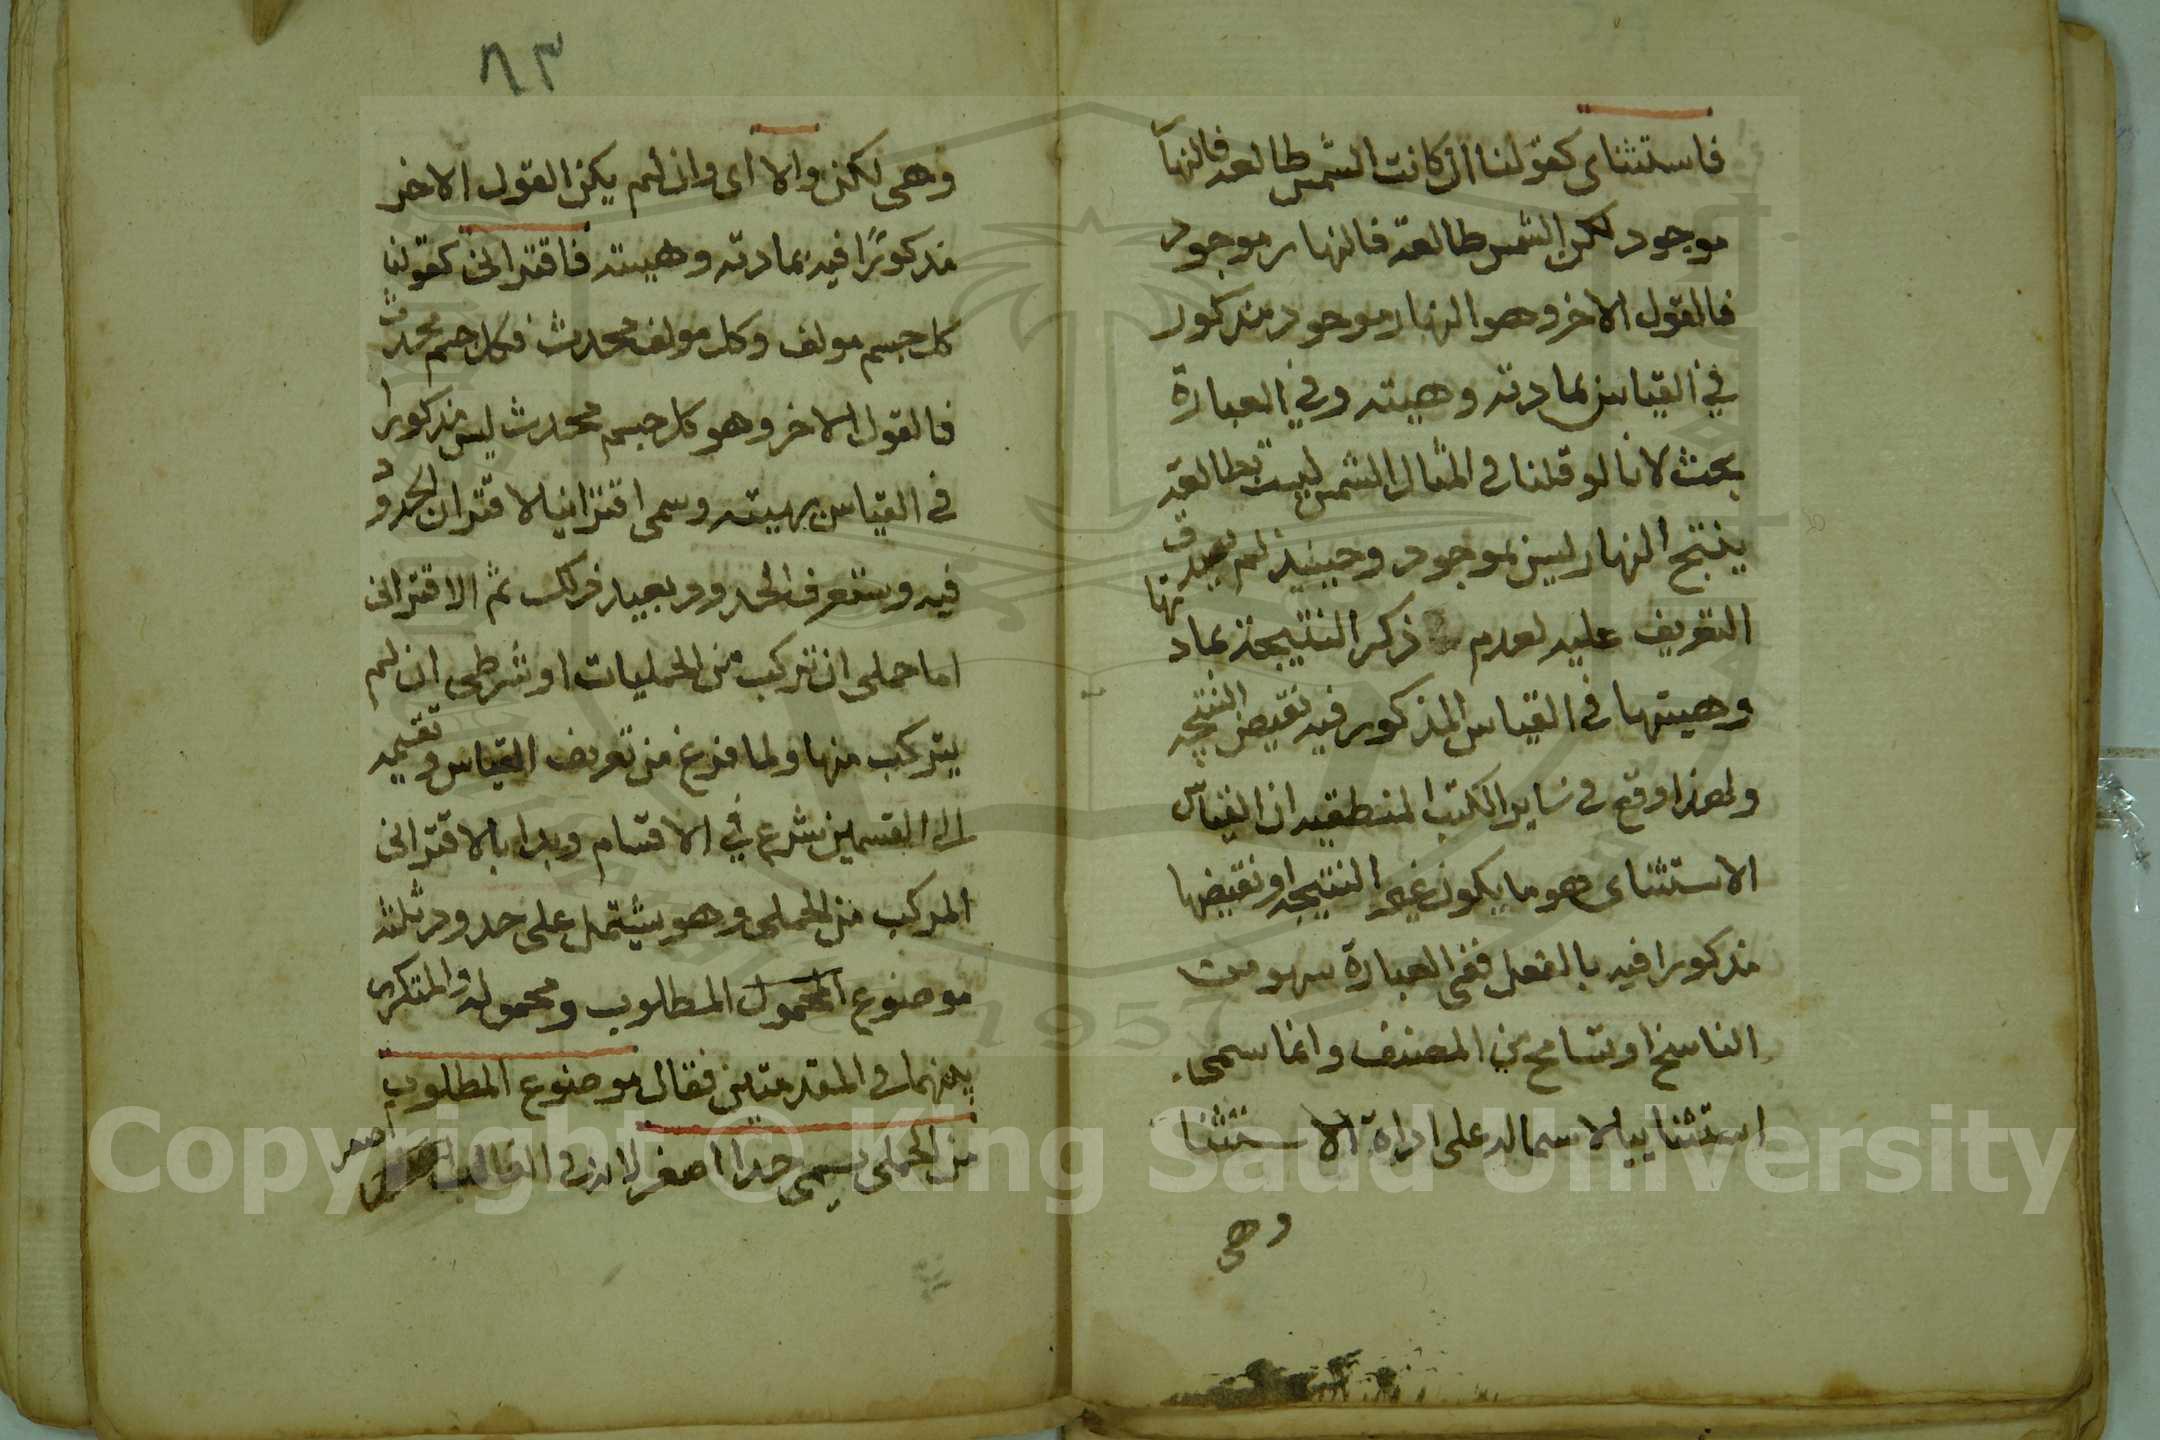 فاستثناى كقولنا ان كانت الشمس طالعه فالنها
موجود لكن الشمس طالعة فالنهار موجود
فالقول الاخر وهو النهار موجود مذكور
في القياس بمادته وهيئته وفي العبارة
بحث لانا لو قلنا في المثال الشمس ليست بطالعة
ينتج النهار ليس بموجود وحينيذ لم يصدق
التعريف عليه لعدم ذكر النتيجة بمادتها
وهيتها في القياس المذكور فيه نقيض النتيجه
ولهذا وقع في ساير الكتب المنطقيه ان القياس
الاستثناى هو ما يكون عين النتيجه او نقيضها
مذكورا فيه بالفعل ففى العبارة سهو من
الناسخ او تسامح من المصنف وانما سمى
استثناييا لاشتماله على اداة الاستثنا
وهى
٨٣
وهى لكن والا اى وان لم يكن القول الاخر
مذكورًا فيه بمادته وهيئته فاقترانى كقولنا
كل جسم مولف وكل مولف محدث فكل جسم محدث
فالقول الاخر وهو كل جسم محدث ليس مذكورا
في القياس بهيئته وسمى اقترانيا لاقتران الحدود
فيه وستعرف الحدود بعيد ذلك ثم الاقترانى
اما حملى ان تركب من الحمليات او شرطى ان لم
يتركب منها ولما فرغ من تعريف القياس وتقسيمه
الى القسمين شرع في الاقسام وبدا بالاقترانى
المركب من الحملى وهو يشتمل على حدود ثلثة
موضوع المحمول المطلوب ومحموله والمتكرر
بينهما في المقدمتين فقال موضوع المطلوب
من الحملى يسمى حدا اصغر لانه في الغالب اصغر
Copyright © King Saud University
1957